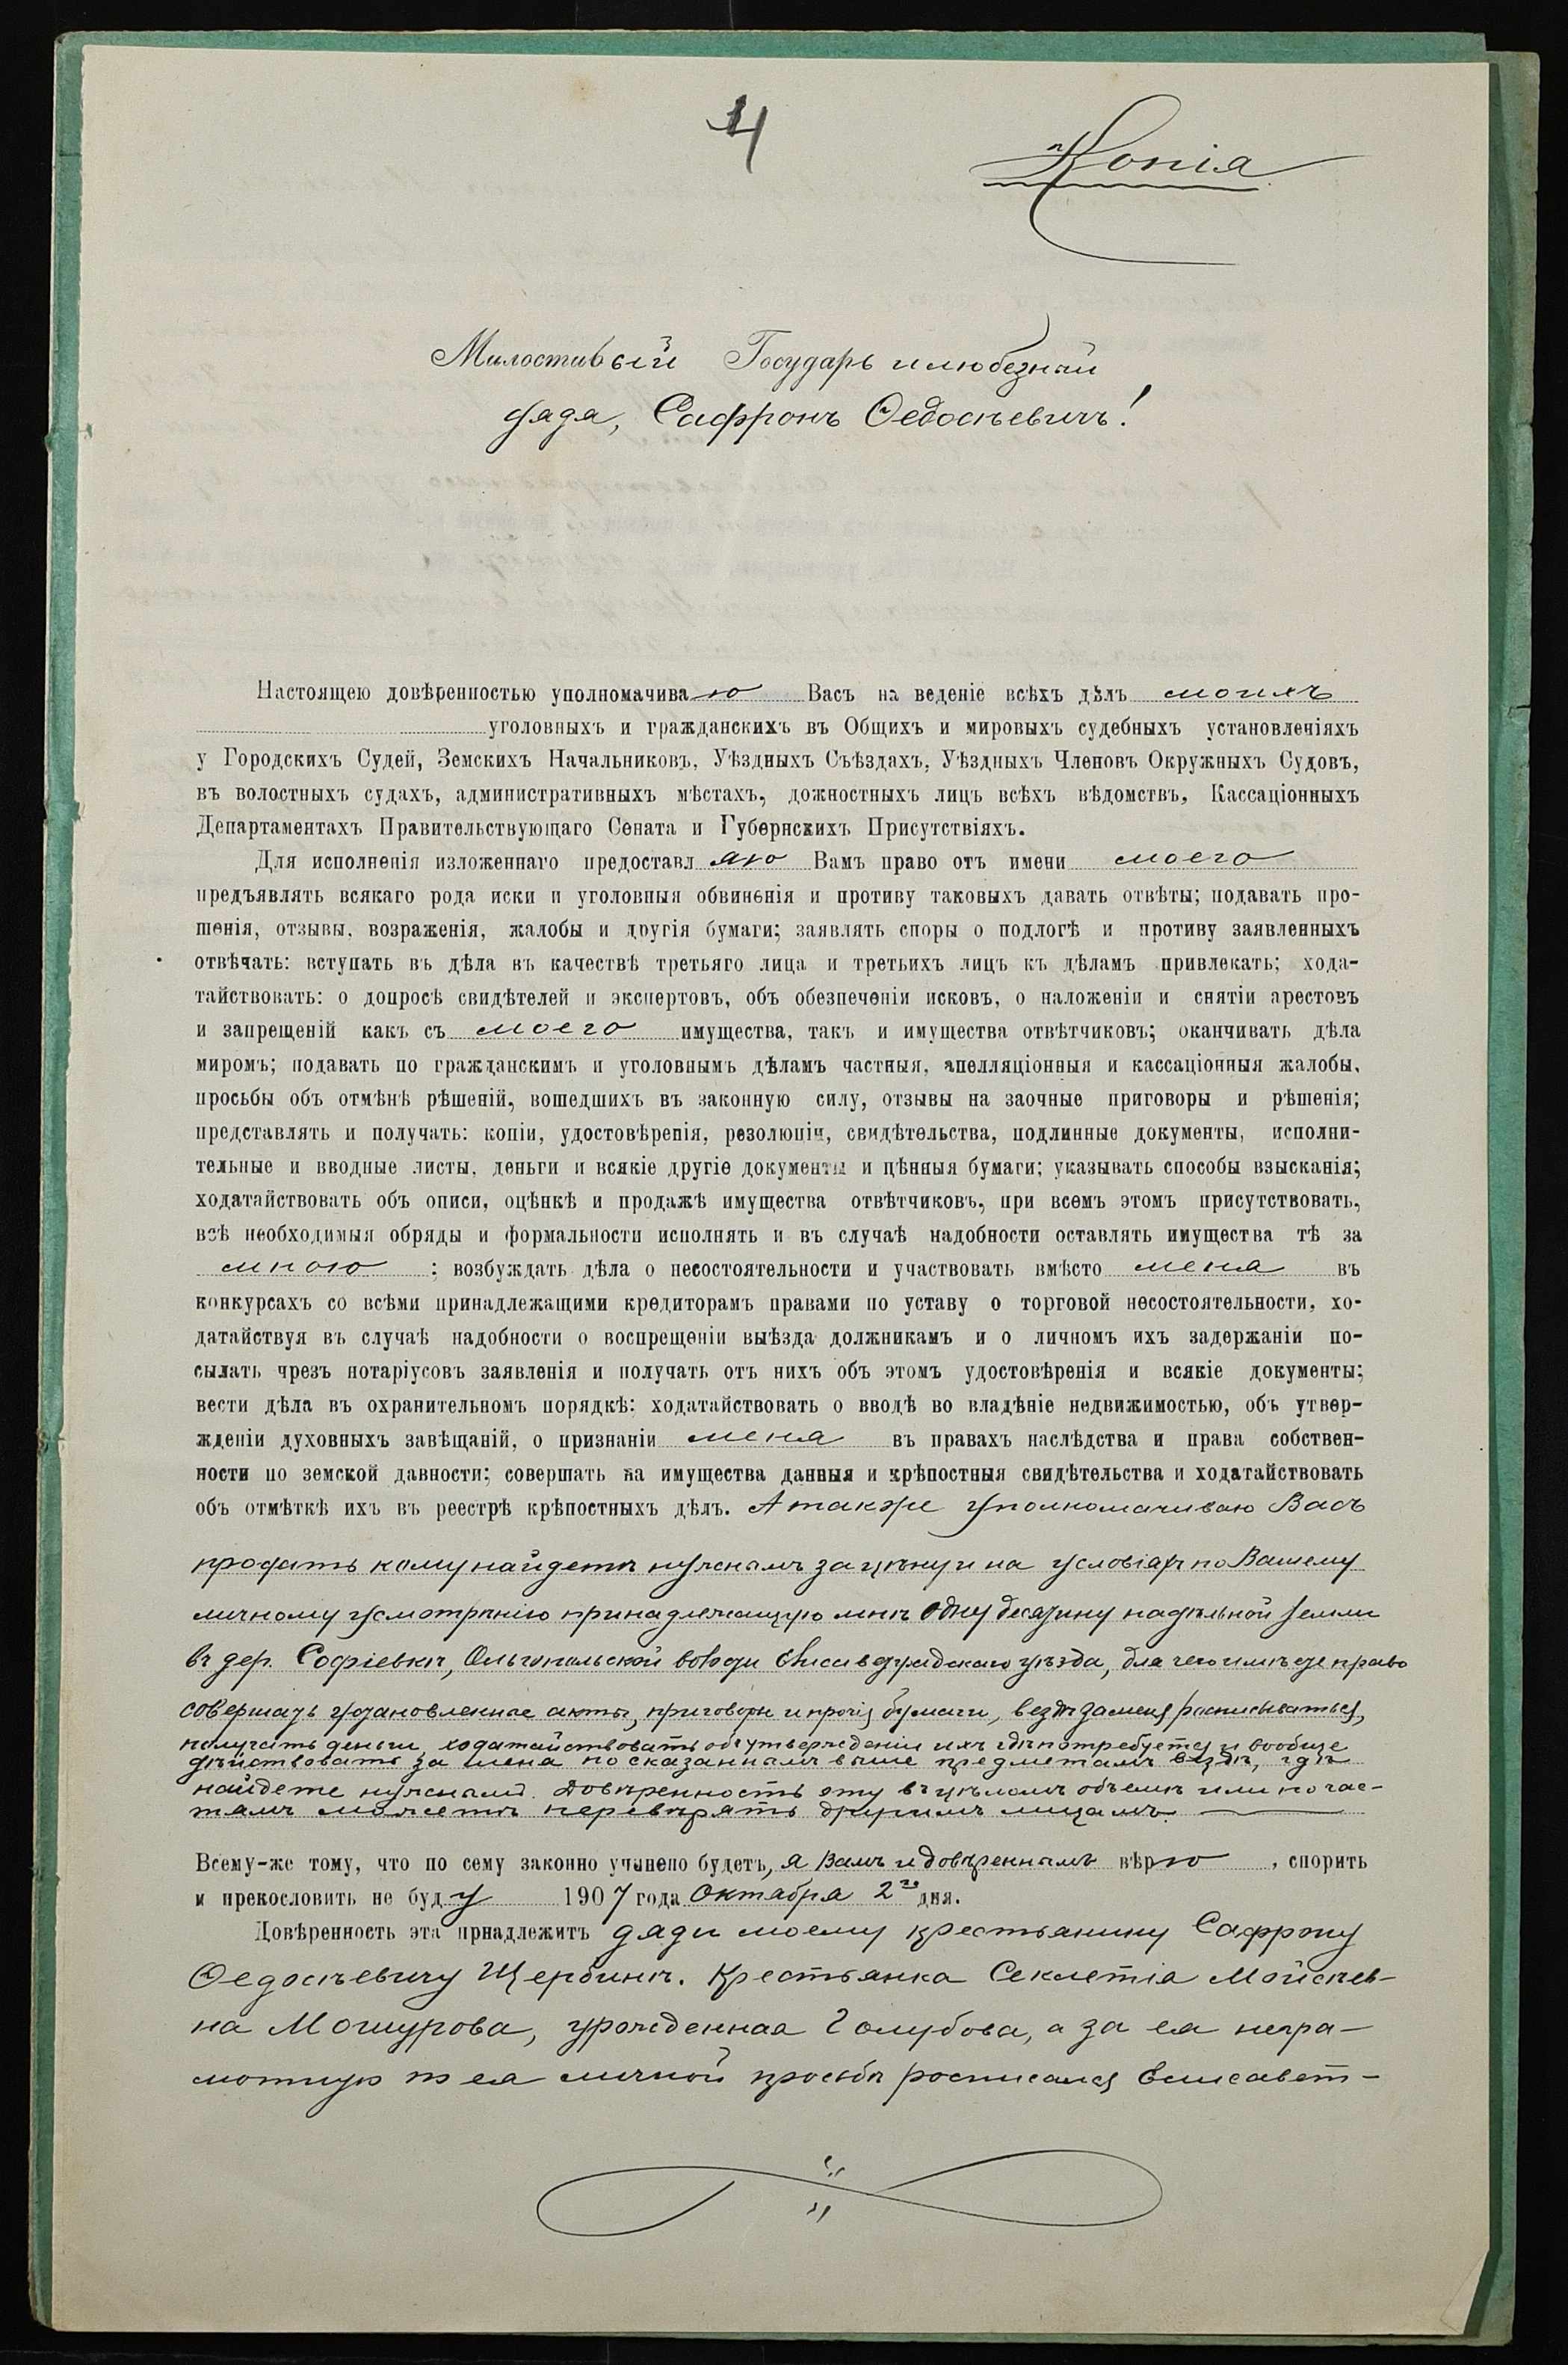 4
Копія
Милостивый Государь и любезный
дядя, Сафронъ Ѳедосѣевичъ!
Настоящею довѣренностью уполномачиваю Васъ на веденіе всѣхъ дѣлъ моихъ
уголовныхъ и гражданскихъ въ Общихъ и мировыхъ судебныхъ установленіяхъ
у Городскихъ Судей, Земскихъ Начальниковъ, Уѣздныхъ Съѣздахъ, Уѣздныхъ Членовъ Окружныхъ Судовъ,
въ волостныхъ судахъ, административныхъ мѣстахъ, дожностныхъ лицъ всѣхъ вѣдомствъ, Кассаціонныхъ
Департаментахъ Правительствующаго Сената и Губернскихъ Присутствіяхъ.
Для исполненія изложеннаго предоставляю Вамъ право отъ имени моего
предъявлять всякаго рода иски и уголовныя обвиненія и противу таковыхъ давать отвѣты; подавать про-
шенія, отзывы, возраженія, жалобы и другія бумаги; заявлять споры о подлогѣ и противу заявленныхъ
отвѣчать: вступать въ дѣла въ качествѣ третьяго лица и третьихъ лицъ къ дѣламъ привлекать; хода-
тайствовать: о допросѣ свидѣтелей и экспертовъ, объ обезпеченіи исковъ, о наложеніи и снятіи арестовъ
и запрещеній какъ съ моего имущества, такъ и имущества отвѣтчиковъ; оканчивать дѣла
миромъ; подавать по гражданскимъ и уголовнымъ дѣламъ частныя, апелляціонныя и кассаціонныя жалобы,
просьбы объ отмѣнѣ рѣшеній, вошедшихъ въ законную силу, отзывы на заочные приговоры и рѣшенія;
представлять и получать: копіи, удостовѣренія, резолюціи, свидѣтельства, подлинные документы, исполни-
тельные и вводные листы, деньги и всякіе другіе документы и цѣнныя бумаги; указывать способы взысканія;
ходатайствовать объ описи, оцѣнкѣ и продажѣ имущества отвѣтчиковъ, при всемъ этомъ присутствовать,
всѣ необходимыя обряды и формальности исполнять и въ случаѣ надобности оставлять имущества тѣ за
мною : возбуждать дѣла о несостоятельности и участвовать вмѣсто меня въ
конкурсахъ со всѣми принадлежащими кредиторамъ правами по уставу о торговой несостоятельности, хо-
датайствуя въ случаѣ надобности о воспрещеніи выѣзда должникамъ и о личномъ ихъ задержаніи по-
сылать чрезъ нотаріусовъ заявленія и получать отъ нихъ объ этомъ удостовѣренія и всякіе документы;
вести дѣла въ охранительномъ порядкѣ: ходатайствовать о вводѣ во владѣніе недвижимостью, объ утвер-
жденіи духовныхъ завѣщаній, о признаніи меня въ правахъ наслѣдства и права собствен-
ности по земской давности; совершать на имущества данныя и крѣпостныя свидѣтельства и ходатайствовать
объ отмѣткѣ ихъ въ реестрѣ крѣпостныхъ дѣлъ. А также уполномачиваю Васъ
продать кому найдете нужнымъ за цѣну и на условіяхъ по Вашему
личному усмотрѣнію принадлежащую мнѣ одну десятину надѣльной земли
въ дер. Софіевкѣ, Ольгопольской волости Елисаветградскаго уѣзда, для чего имѣете право
совершать установленные акты, приговоры и прочія бумаги, вездѣ за меня расписываться,
получать деньги, ходатайствовать объ утвержденіи ихъ гдѣ потребуется и вообще
дѣйствовать за меня по сказаннымъ выше предметамъ вездѣ, гдѣ
найдете нужнымъ. Довѣренность эту въ цѣломъ объемѣ или по час-
тямъ можете перевѣрять другимъ лицамъ.
Всему-же тому, что по сему законно учинено будетъ, я Вамъ и довѣреннымъ вѣрю, спорить
и прекословить не буду 1907 года Октября 2го дня.
Довѣренность эта прнадлежитъ дяди моему крестьянину Сафрону
Ѳедосѣевичу Щербинѣ. Крестьянка Секлетія Мойсѣев-
на Мошурова, урожденная Голубова, а за ея негра-
мотную по ея личной просьбѣ росписался Елисавет-